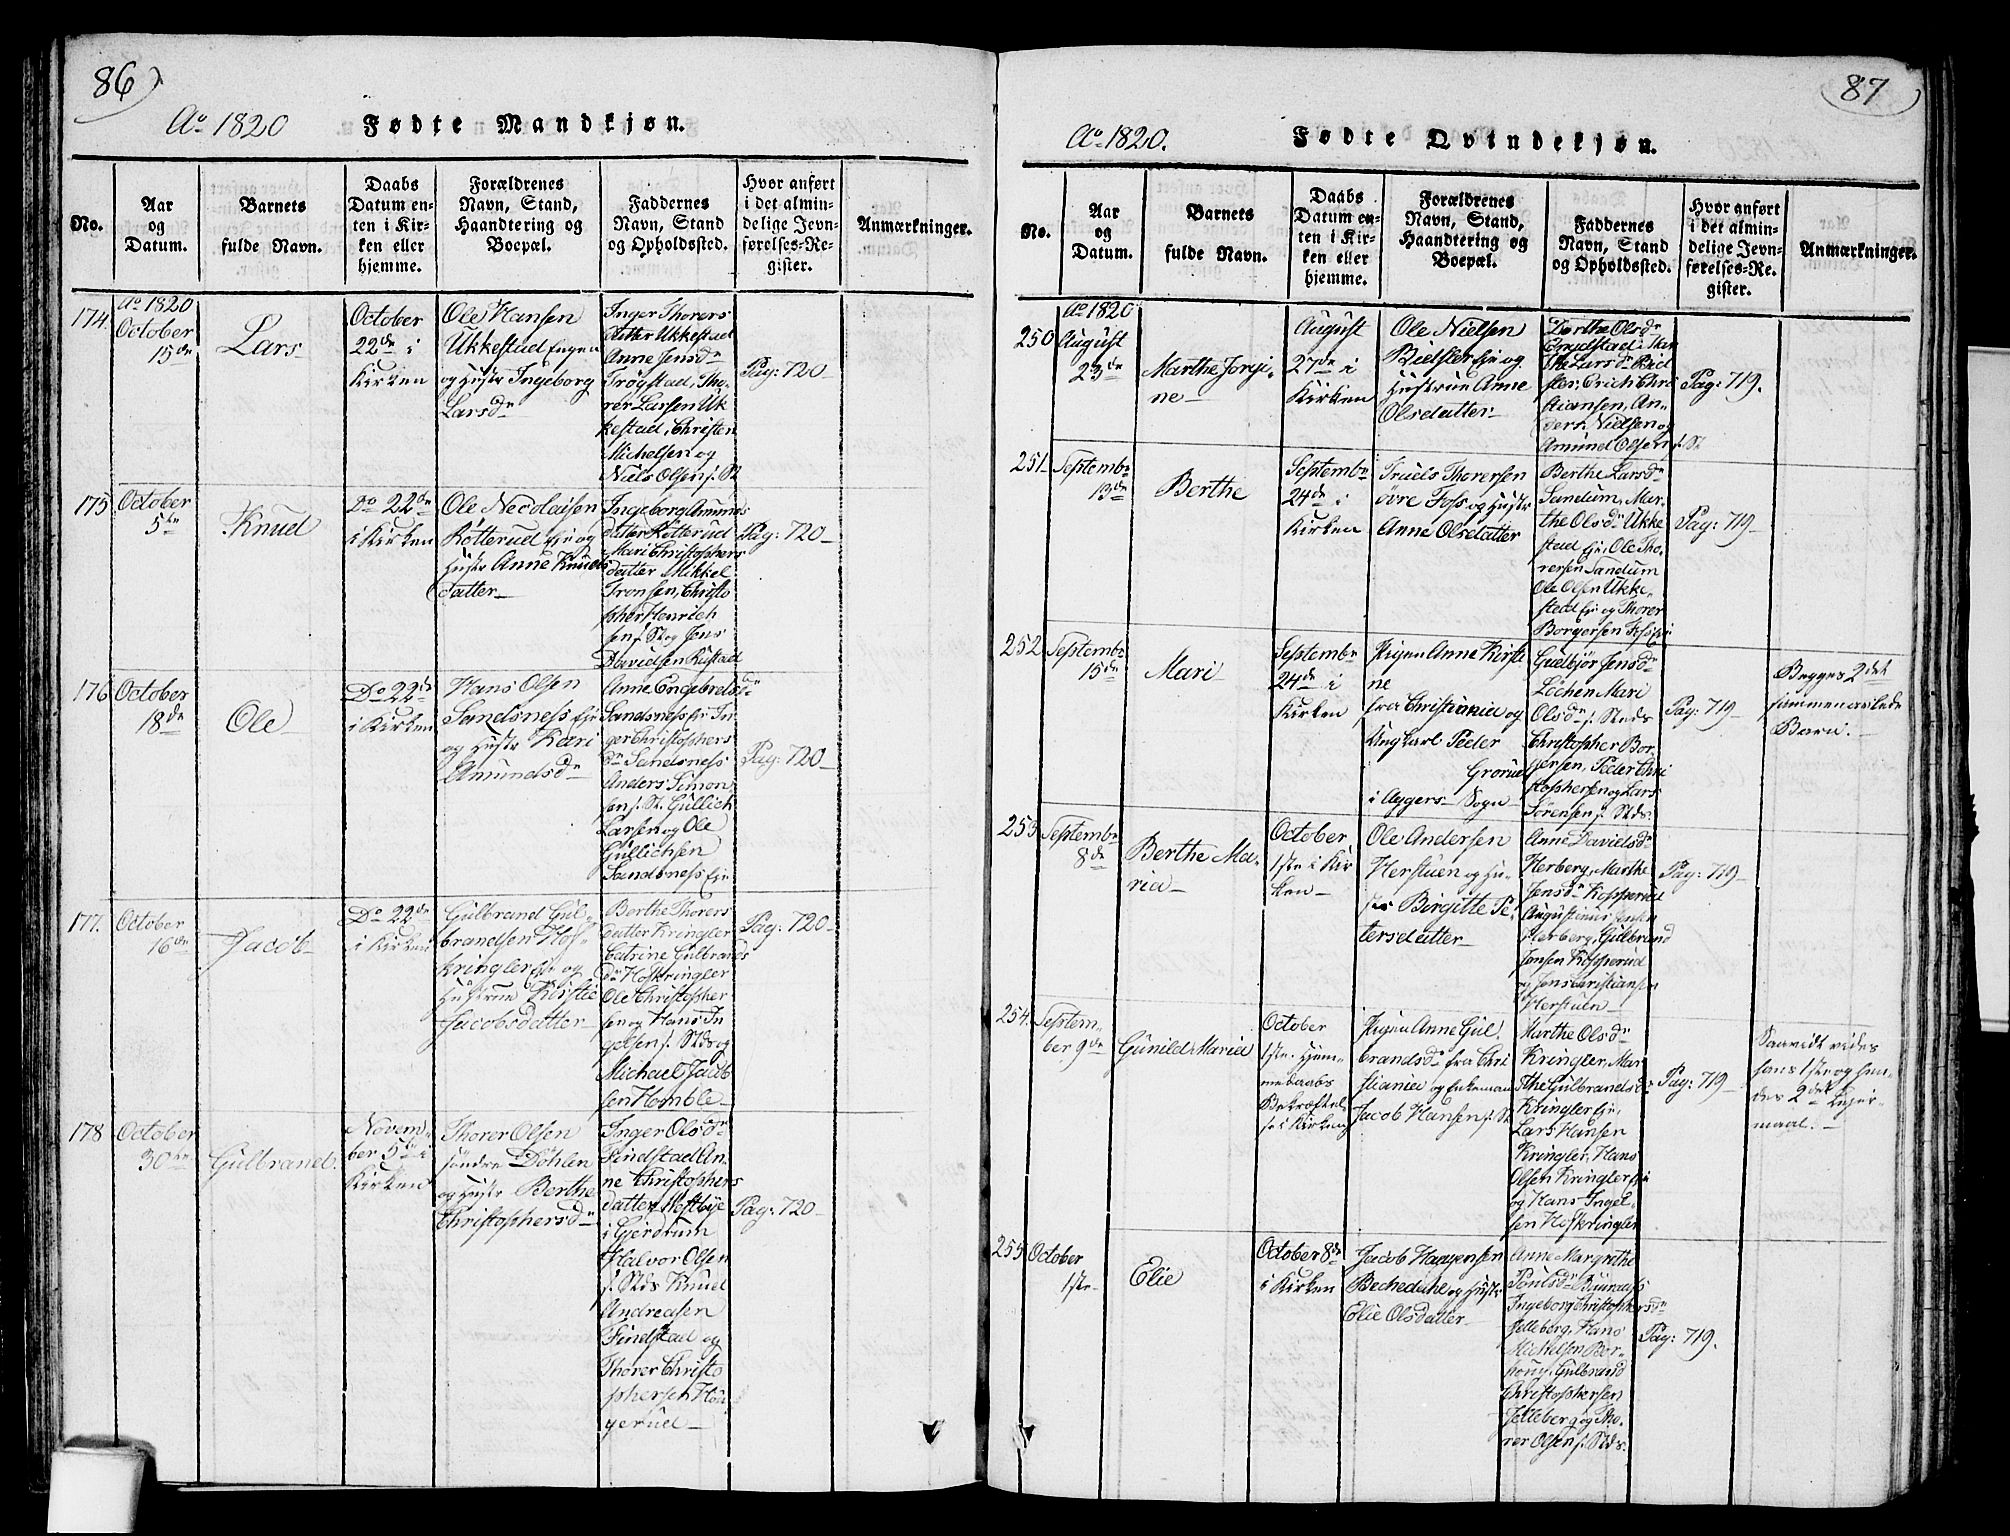 86
Ao 1820 Fødte Mandkjøn.
No.
Aar
og
Datum.
Barnets
fulde Navn.
Daabs
Datum en-
ten i Kir-
ken eller
hjemme.
Forældrenes
Navn, Stand,
Haandtering og
Boepæl.
Faddernes
Navn, Stand
og Opholdssted.
Hvor anført
i det almin-
delige Jevn-
førelses-Re-
gister.
Anmærkninger.
174.
Ao 1820
October
15de
Lars
October
22de i
Kirken
Ole Hansen
Ukkestad Engen
og Hustr Ingeborg
Larsdr
Inger Thorers
datter Ukkestad
Anne Jensdr
Trögstad, Tho-
rer Larsen Uk
kestad, Christen
Michelsen og
Niels Olsen s. St
Pag: 720
175
October
5te
Knud
Do 22de
i Kirken
Ole Nicolaisen
Kötterud Eje og
Hustr Anne Knuds
datter
Ingeborg Amunds
datter Kötterud
Mari Christophers
datter Mikkel
Tronsen, Christo
pher Henrich
sen s. St og Jens
Davidsen Rustad
Pag: 720
176
October
18de
Ole
Do 22de
i Kirken
Hans Olsen
Sandsness Eje
og Hustr Kari
Amundsdr
Anne Engebretsdr
Sandsness Eje In
ger Christophers
dr Sandsness
Anders Simon
sen s. St. Gullich
Larsen og Ole
Gullichsen
Sandsness Eje
Pag: 720
177.
October
16de
Jacob
Do 22de
i Kirken
Gulbrand Gul-
brandsen Hof-
kringler Eje og
Hustrue Kirstie
Jacobsdatter
Berthe Thorers
datter Kringler
Catrine Gulbrands
dr Hofkringler
Ole Christopher
sen og Hans In
gelsen s. Stds og
Michael Jacob
sen Homble
Pag: 720
178
October
30te
Gulbrand.
Novem-
ber 5te i
Kirken
Thorer Olsen
söndre Döhlen
og Hustr Berthe
Christophersdr
Inger Olsdr
Findstad An-
ne Christophers
datter Westbye
i Gjerdrum
Halvor Olsen
s. Stds Knud
Andreasen
Findstad og
Thorer Christo
phersen Hau
gerud
Pag: 720
87
Ao 1820. Fødte Qvindekjøn.
No.
Aar
og
Datum.
Barnets
fulde Navn.
Daabs
Datum en-
ten i Kir-
ken eller
hjemme.
Forældrenes
Navn, Stand,
Haandtering og
Boepæl.
Faddernes
Navn, Stand
og Opholdssted.
Hvor anført
i det almin-
delige Jevn-
førelses-Re-
gister.
Anmærkninger.
250
Ao 1820
August
23de
Marthe Jorgi-
ne
August
27de i
Kirken
Ole Nielsen
Kielster Eje og
Hustrue Anne
Olsdatter
Berthe Olsdr
Mar
the Larsdr Kiel
ster, Erich Chri
stiansen, An-
ders Nielsen og
Amund Olsen s. St
Pag: 719.
251
Septembr
13de
Berthe
Septembr
24de i
Kirken
Truels Thorersen
övre Foss og Hustr
Anne Olsdatter
Berthe Larsdr
Sandum, Mar-
the Olsdr Ukke
stad Eje, Ole Tho-
rersen Sandum
Ole Olsen Ukke-
stad Eje og Thorer
Borgersen Foss Eje
Pag: 719
252
Septembr
15de
Mari
Septembr
24de i
Kirken
Pigen Anne Kirsti
ne
fra Christiania og
Ungkarl Peder
Grorud
i Aggers Sogn
Gulbjör Jensdr
Lochen Mari
Olsdr s. Steds
Christopher Bor-
gersen, Peder Chri
stophersen og Lars
Sörensen s. Stds.
Pag: 719
Begges 2det
sammenavlede
Barn.
253
Septembr
8de
Berthe Ma-
ria
October
1ste i Kir
ken
Ole Andersen
Herstuen og Hu-
str Birgitte Pe-
tersdatter
Anne Davidsdr
Herberg, Marthe
Jensdr Kopperud
Augustinus Jensen
Herberg, Gulbrand
Jensen Kopperud
og Jens Christiansen
Herstuen
Pag: 719
254.
Septem-
ber 9de
Gunild Maria
October
1ste. Hjem-
medaabs
Bekræftel
se i Kirken
Pigen Anne Gul
brandsdr fra Chri
stiania og Enkemand
Jacob Hansen s. St
Marthe Olsdr
Kringler, Mar
the Gulbrandsdr
Kringler Eje,
Lars Hansen
Kringler, Hans
Olsen Kringler Eje
og Hans Ingel-
sen Hofkringler
Pag: 719
Saavidt vides
hans 1ste og hen-
des 2det Lejer-
maal.
255
October
1ste
Elie
October 8de
i Kirken
Jacob Haagensen
Bechedahl og Hustr
Elie Olsdatter
Anne Margrethe
Poulsdr Buundahls
Ingeborg Christophersdr
Jelleberg, Hans
Michelsen Bor-
, Gulbrand
Christophersen
Jelleberg og Tho-
rer Olsen s. Stds.
Pag: 719.